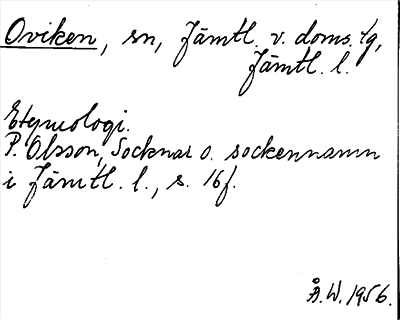 Oviken, sn, Jämtl. v. doms. lg,
Jämtl. l.
Etymologi.
P. Olsson, Socknar o. sockennamn
i Jämtl. l., s. 16f.
Å.W. 1956.